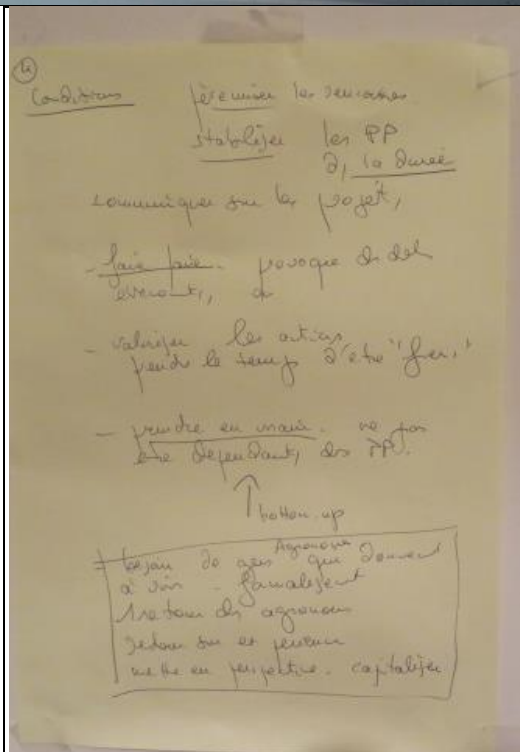 4
Conditions pérenniser les rencontres
stabiliser les PP
d, la durée
communiquer sur les projets,
- faire faire. provoque des
événements,
- valoriser les actions
prendre le temps d'être "fier,"
- prendre en main. ne pas
être dépendants, des PP.
bottom-up
= besoin de gens Agronomes qui donnent
à voir - formalisent
retour des agronomes
retour sur et
mettre en perspective. capitaliser